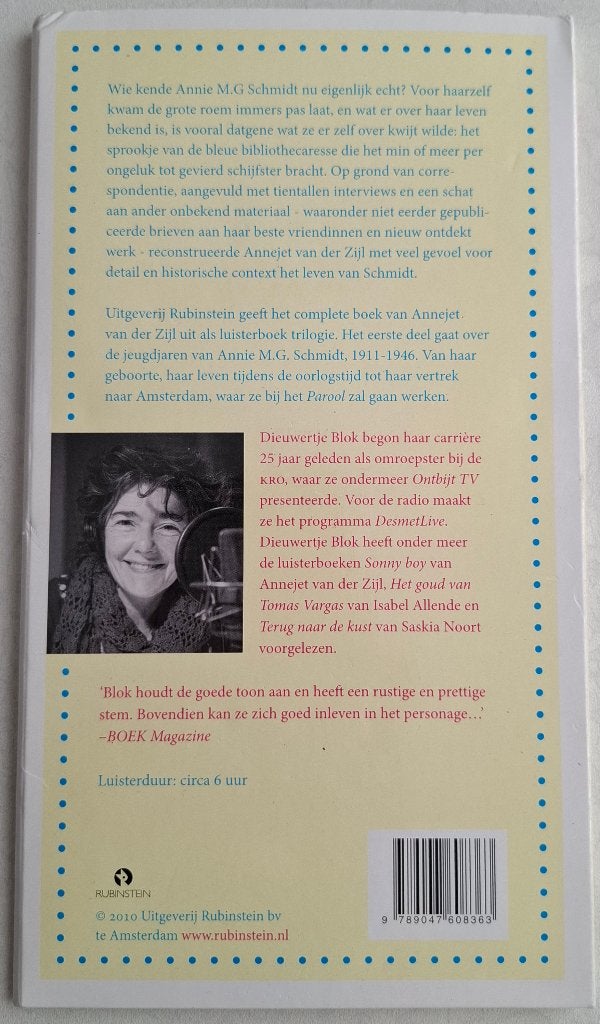 Wie kende Annie M.G Schmidt nu eigenlijk echt? Voor haarzelf
kwam de grote roem immers pas laat, en wat er over haar leven
bekend is, is vooral datgene wat ze er zelf over kwijt wilde: het
sprookje van de bleue bibliothecaresse die het min of meer per
ongeluk tot gevierd schijfster bracht. Op grond van corre-
spondentie, aangevuld met tientallen interviews en een schat
aan ander onbekend materiaal - waaronder niet eerder gepubli-
ceerde brieven aan haar beste vriendinnen en nieuw ontdekt
werk - reconstrueerde Annejet van der Zijl met veel gevoel voor
detail en historische context het leven van Schmidt.
Uitgeverij Rubinstein geeft het complete boek van Annejet
van der Zijl uit als luisterboek trilogie. Het eerste deel gaat over
de jeugdjaren van Annie M.G. Schmidt, 1911-1946. Van haar
geboorte, haar leven tijdens de oorlogstijd tot haar vertrek
naar Amsterdam, waar ze bij het Parool zal gaan werken.
Dieuwertje Blok begon haar carrière
25 jaar geleden als omroepster bij de
KRO, waar ze ondermeer Ontbijt TV
presenteerde. Voor de radio maakt
ze het programma DesmetLive.
Dieuwertje Blok heeft onder meer
de luisterboeken Sonny boy van
Annejet van der Zijl, Het goud van
Tomas Vargas van Isabel Allende en
Terug naar de kust van Saskia Noort
voorgelezen.
'Blok houdt de goede toon aan en heeft een rustige en prettige
stem. Bovendien kan ze zich goed inleven in het personage...'
–BOEK Magazine
Luisterduur: circa 6 uur
RUBINSTEIN
© 2010 Uitgeverij Rubinstein bv
te Amsterdam www.rubinstein.nl
9 789047 608363